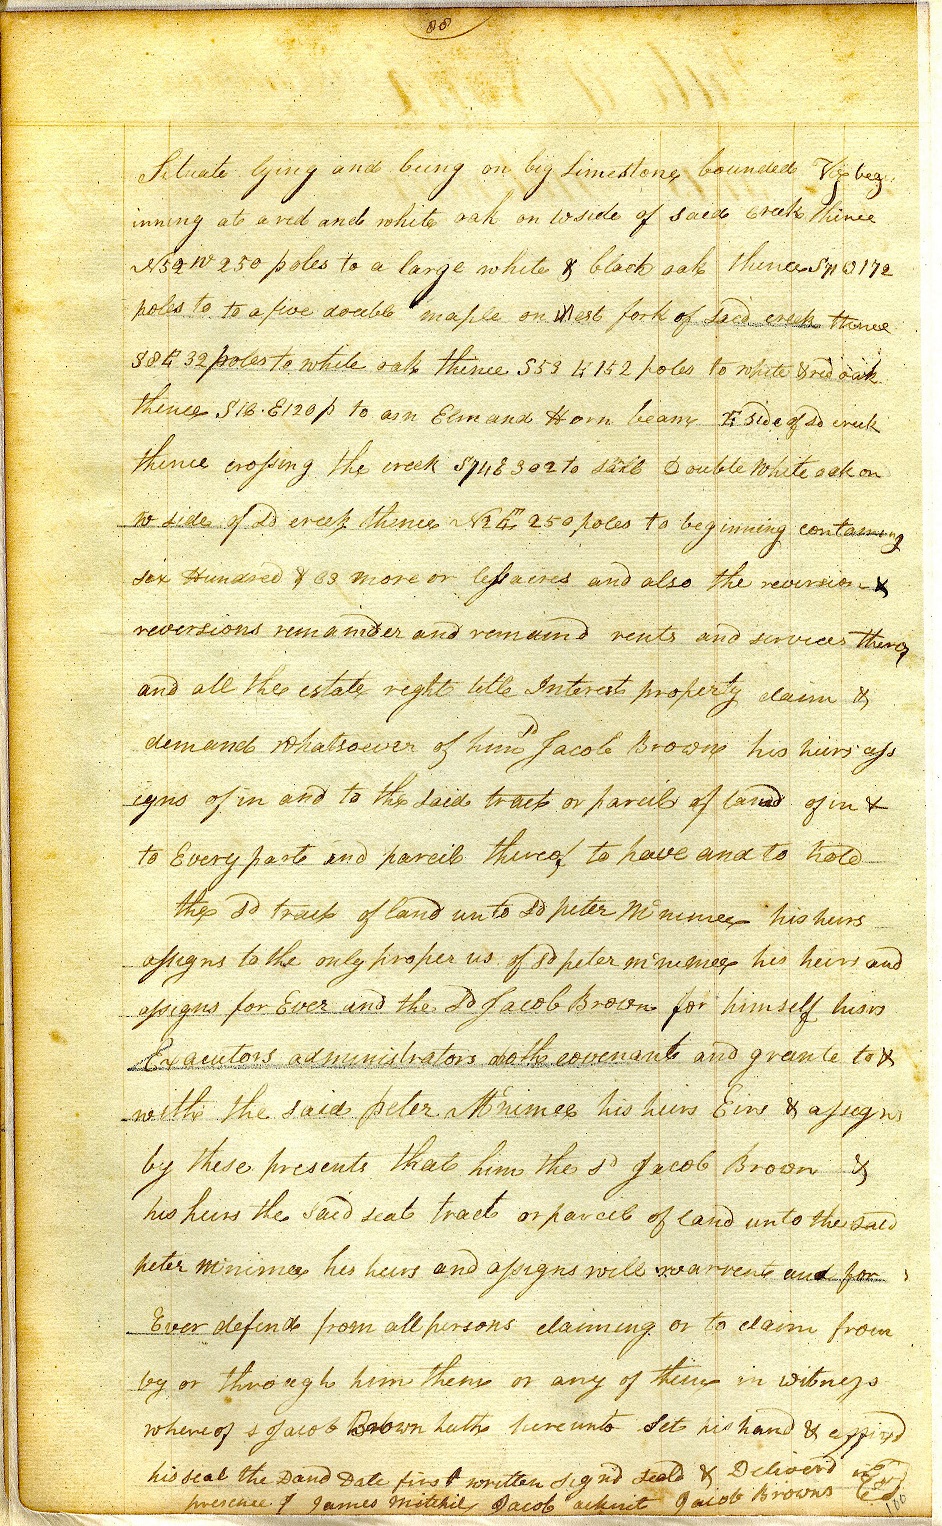 88
Situate lying and being on big Limestone bounded Viz beg
inning at a red and white oak on w side of said creek thence
N52 W 250 poles to a large white & black oak thence S71 W 172
poles to to a five double maple on West fork of said creek thence
S8 E 32 poles to white oak thence S53 E 152 poles to white & red oak
thence S18 E 120 p to asn Elm and Horn beam E side of sd creek
thence crossing the creek S74 E 302 to Double White oak on
w side of sd creek thence N2 E 250 poles to beginning containing
six Hundred & 83 more or less acres and also the reversion &
reversions remainder and remaind rents and services thereof
and all the estate right title Interest property claim &
demand whatsoever of him sd Jacob Brown his heirs ass
igns of in and to the said tract or parcil of land of in &
to Every part and parcil thereof to have and to hold
the sd tract of land unto sd peter Mcnimee his heirs
assigns to the only proper us of sd peter mcnimee his heirs and
assigns for Ever and the sd Jacob Brown for himself heirs
Exacutors administrators doth covenant and grante to &
with the said peter Mcnimee his heirs Eirs & assigns
by these presents that him the sd Jacob Brown &
his heirs the said seat tract or parcil of land unto the said
peter mcnimee his heirs and assigns will warrent and for
Ever defend from all persons claiming or to claim from
by or through him them or any of them in witness
whereof s Jacob Brown hath hereunto set his hand & affixd
his seal the Dand Date first written signd seald & Deliverd in
presence of James Mitchil Jacob Jacob Browns
100